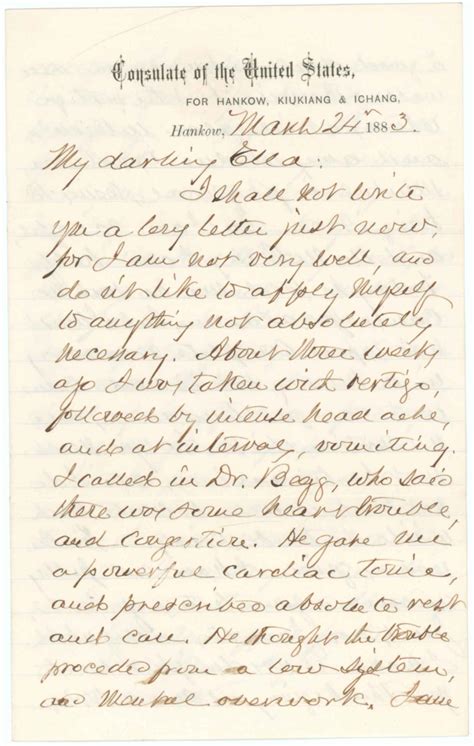 Consulate of the United States,
FOR HANKOW, KIUKIANG & ICHANG,
Hankow, March 24th 1883.
My darling Ella:
I shall not write
you a long letter just now;
for I am not very well, and
don't like to apply myself
to anything not absolutely
necessary. About three weeks
ago I was taken with vertigo,
followed by intense head ache,
and at intervals, vomiting.
I called in Dr. Begg, who said
there was some heart trouble,
and congestion. He gave me
a powerful cardiac tonic,
and prescribed absolute rest
and care. He thought the trouble
proceded from a low system,
and mental overwork.